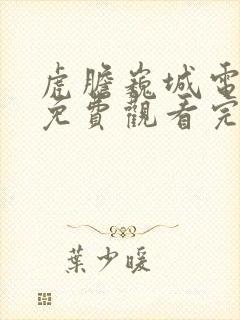 虎膽巍城電
免費觀看完
葉少暖